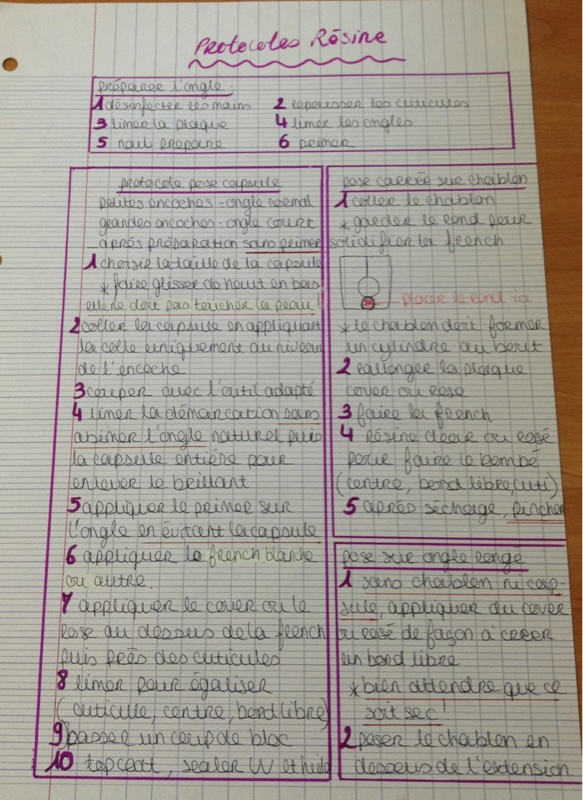 Protocoles Résine
préparer l'ongle
1 désinfecter les mains
2 repousser les cuticules
3 limer la plaque
4 limer les ongles
5 nail prepare
6 primer
protocole pose capsule
petites encoches - ongle normal
grandes encoches - ongle court
après préparation sans primer
1 choisir la taille de la capsule
* faire glisser de haut en bas
elle ne doit pas toucher la peau!
2 coller la capsule en appliquant
la colle uniquement au niveau
de l'encoche
3 couper avec l'outil adapté
4 limer la démarcation sans
abîmer l'ongle naturel puis
la capsule entière pour
enlever le brillant
5 appliquer le primer sur
l'ongle en évitant la capsule
6 appliquer le french blanche
ou autre.
7 appliquer le cover ou le
rose au dessus de la french
puis près des cuticules
8 limer pour égaliser
(cuticule, centre, bord libre)
9 passer un coup de bloc
10 topcoat, sealer UV et huile
pose carrée sur chablon
1 coller le chablon
* garder le rond pour
solidifier la french
placer le rond ici
* le chablon doit former
un cylindre au bout
2 rallonger la plaque
cover ou rose
3 faire la french
4 résine clear ou rosé
pour faire le bombé
(centre, bord libre, cuti)
5 après séchage, pincher
pose sur ongle rongé
1 sans chablon ni cap-
sule, appliquer du cover
ou rosé de façon à créer
un bord libre
* bien attendre que ce
soit sec!
2 poser le chablon en
dessous de l'extension